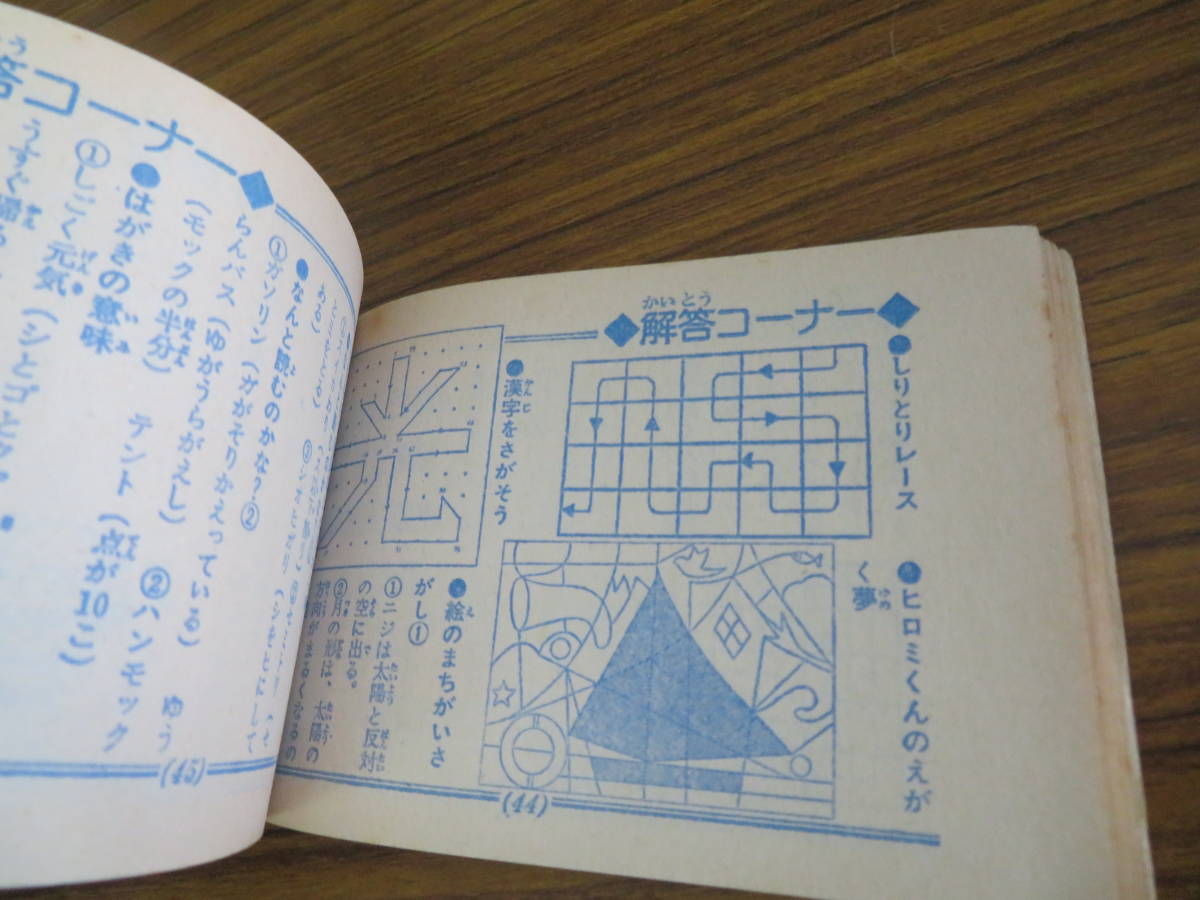 ◆解答コーナー◆
かいとう
●しりとりレース
●ヒロミくんのえが
く夢
ゆめ
●漢字をさがそう
かんじ
●絵のまちがいさ
がし①
①ニジは太陽と反対
の空に出る。
②月の形は、太陽の
方向がまるくなるの
(44)
答コーナー◆
ある)
●なんと読むのかな?②
①ガソリン(ガがそりかえっている) ゆう
らんバス(ゆがうらがえし) ②ハンモック
(モックの半分) テント(点が10こ)
●はがきの意味
①しごく元気(シとゴと
うすぐ帰る
(45)